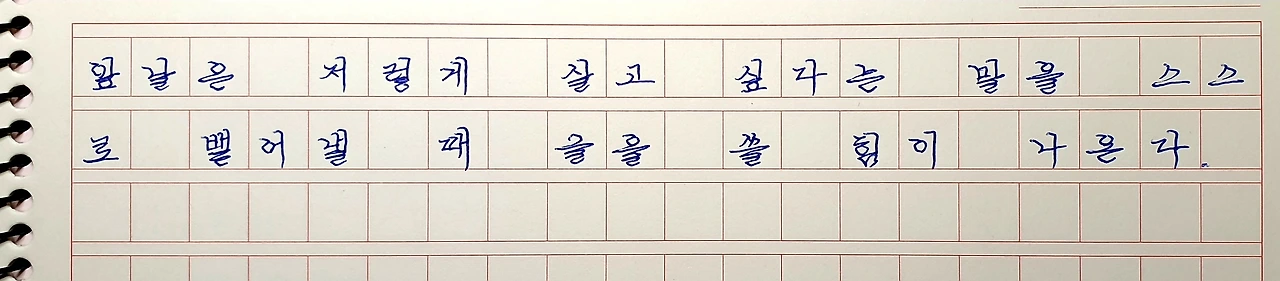 앞날은 저렇게 살고 싶다는 말을 스스
로 뱉어낼 때 글을 쓸 힘이 나온다.